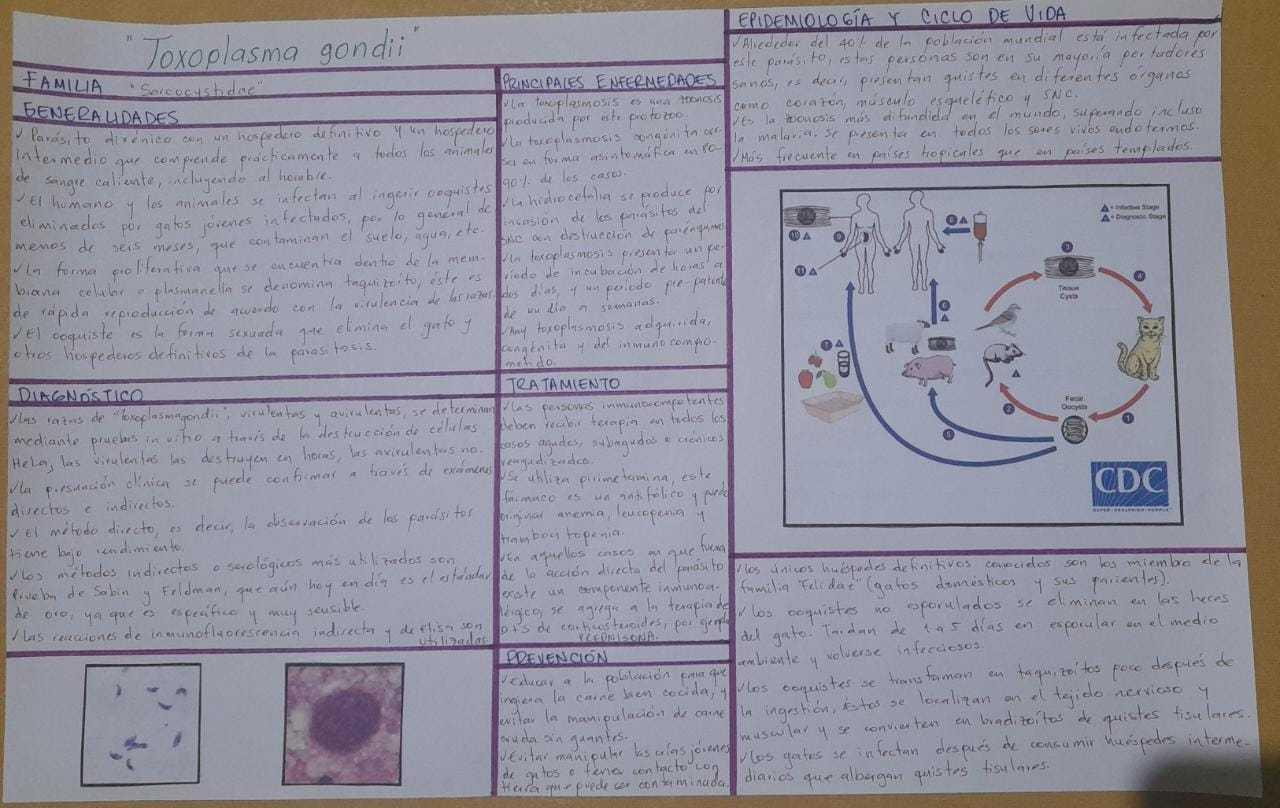 "Toxoplasma gondii"
FAMILIA "Sarcocystidae"
GENERALIDADES
✓ Parásito dixénico con un hospedero definitivo y un hospedero
intermedio que comprende prácticamente a todos los animales
de sangre caliente, incluyendo al hombre.
✓ El humano y los animales se infectan al ingerir ooquistes
eliminados por gatos jóvenes infectados, por lo general de
menos de seis meses, que contaminan el suelo, agua, etc.
✓ La forma proliferativa que se encuentra dentro de la mem-
brana celular o plasmanella se denomina taquizoíto, éste es
de rápida reproducción de acuerdo con la virulencia de las razas.
✓ El ooquiste es la forma sexuada que elimina el gato y
otros hospederos definitivos de la parasitosis.
DIAGNÓSTICO
✓ Las razas de "Toxoplasma gondii", virulentas y avirulentas, se determinan
mediante pruebas in vitro a través de la destrucción de células
HeLa, las virulentas las destruyen en horas, las avirulentas no.
✓ La presunción clínica se puede confirmar a través de exámenes
directos e indirectos.
✓ El método directo, es decir, la observación de los parásitos
tiene bajo rendimiento.
✓ Los métodos indirectos o serológicos más utilizados son
Prueba de Sabin y Feldman, que aún hoy en día es el estándar
de oro, ya que es específico y muy sensible.
✓ Las reacciones de inmunofluorescencia indirecta y de elisa son
utilizadas
PRINCIPALES ENFERMEDADES
✓ La toxoplasmosis es una zoonosis
producida por este protozoo.
✓ La toxoplasmosis congénita cur-
sa en forma asintomática en 80-
90% de los casos.
✓ La hidrocefalia se produce por
invasión de los parásitos del
SNC con destrucción de parénquima
✓ La toxoplasmosis presenta un pe-
ríodo de incubación de horas a
dos días, y un período pre-patente
de un día a semanas.
✓ Hay toxoplasmosis adquirida,
congénita y del inmunocompro-
metido.
TRATAMIENTO
✓ Las personas inmunocompetentes
deben recibir terapia en todos los
casos agudos, subagudos o crónicos
reagudizados.
✓ Se utiliza pirimetamina, este
fármaco es un antifólico y puede
originar anemia, leucopenia y
trombocitopenia.
✓ En aquellos casos en que fuera
de la acción directa del parásito
existe un componente inmunoa-
lérgico, se agrega a la terapia de
p+s de corticosteroides, por ejemplo
PREDNISONA.
PREVENCIÓN
✓ Educar a la población para que
ingiera la carne bien cocida, y
evitar la manipulación de carne
cruda sin guantes.
✓ Evitar manipular las crías jóvenes
de gatos o tener contacto con
tierra que puede ser contaminada.
EPIDEMIOLOGÍA Y CICLO DE VIDA
✓ Alrededor del 40% de la población mundial está infectada por
este parásito, estas personas son en su mayoría portadores
sanos, es decir, presentan quistes en diferentes órganos
como corazón, músculo esquelético y SNC.
✓ Es la zoonosis más difundida en el mundo, superando incluso
la malaria. Se presenta en todos los seres vivos endotermos.
✓ Más frecuente en países tropicales que en países templados.
= Infective Stage
= Diagnostic Stage
Tissue
Cysts
Fecal
Oocysts
1
2
3
4
5
6
7
8
9
10
11
CDC
SAFER • HEALTHIER • PEOPLE™
✓ Los únicos huéspedes definitivos conocidos son los miembro de la
familia "Felidae" (gatos domésticos y sus parientes).
✓ Los ooquistes no esporulados se eliminan en las heces
del gato. Tardan de 1 a 5 días en esporular en el medio
ambiente y volverse infecciosos.
✓ Los ooquistes se transforman en taquizoítos poco después de
la ingestión, Estos se localizan en el tejido nervioso y
muscular y se convierten en bradizoítos de quistes tisulares.
✓ Los gatos se infectan después de consumir huéspedes interme-
diarios que albergan quistes tisulares.